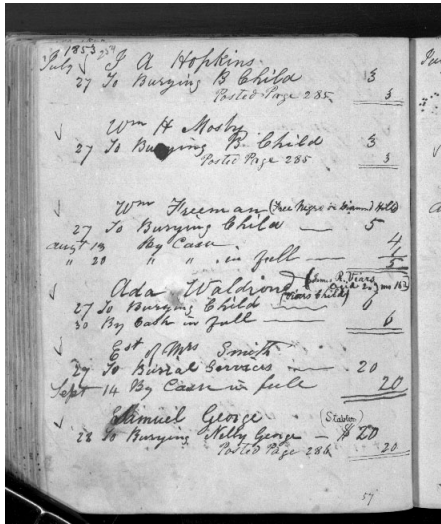 1853
July J A Hopkins
27 To Burying B Child 3
Posted Page 285 3
Wm H Mosby
27 To Burying B. Child 3
Posted Page 285 3
Wm Freeman (Free Negro in Diamond Hill)
27 To Burying Child 5
Augt 13 By Cash 4
" 20 " " in full 1
5
Ada Waldron
(Viars Child)
27 To Burying Child 6
30 By Cash in full 6
Est of Mrs Smith
27 To Burial Services 20
Sept 14 By Cash in full 20
Samuel George (Stabler)
28 To Burying Nelly George $20
Posted Page 286 20
57